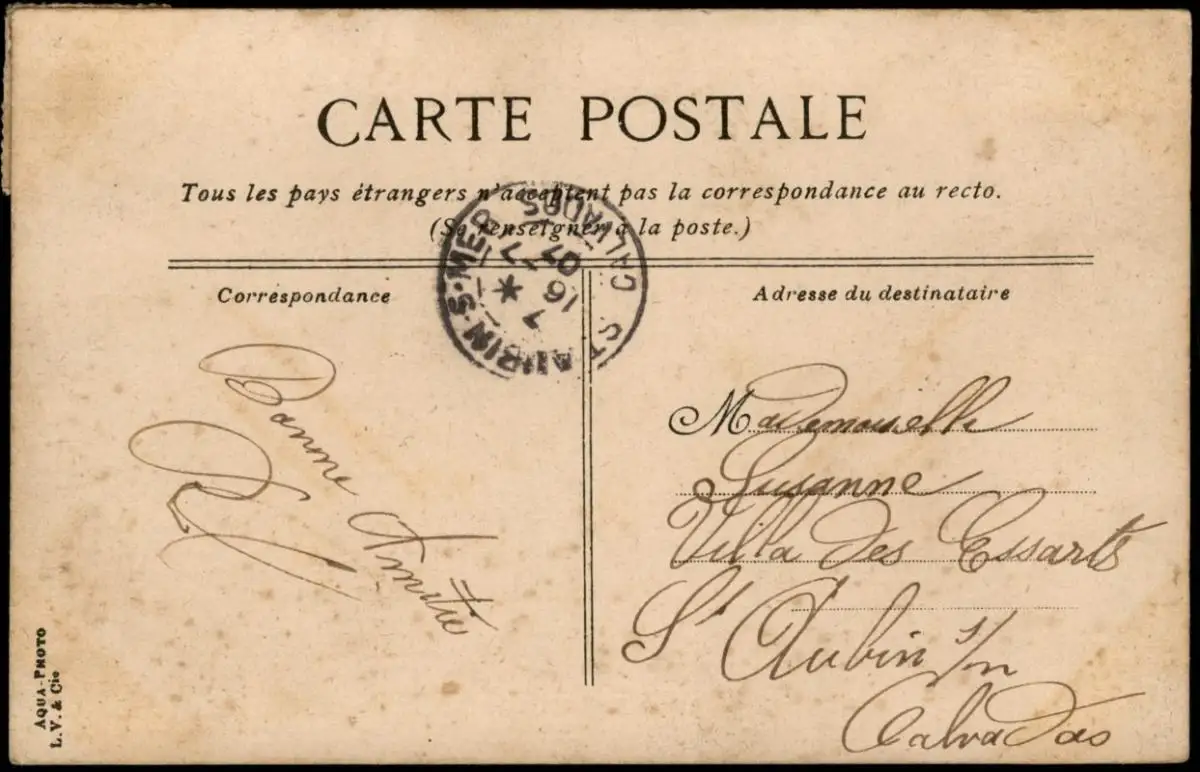 CARTE POSTALE
Tous les pays étrangers n'acceptent pas la correspondance au recto.
(Se renseigner à la poste.)
ST AUBIN-S-MER
CALVADOS
7
16 -7
07
Correspondance
Bonne Amitié
Adresse du destinataire
Mademoiselle
Susanne
Villa des Essarts
St Aubin s/m
Calvados
AQUA-PHOTO
L. V. & Cie